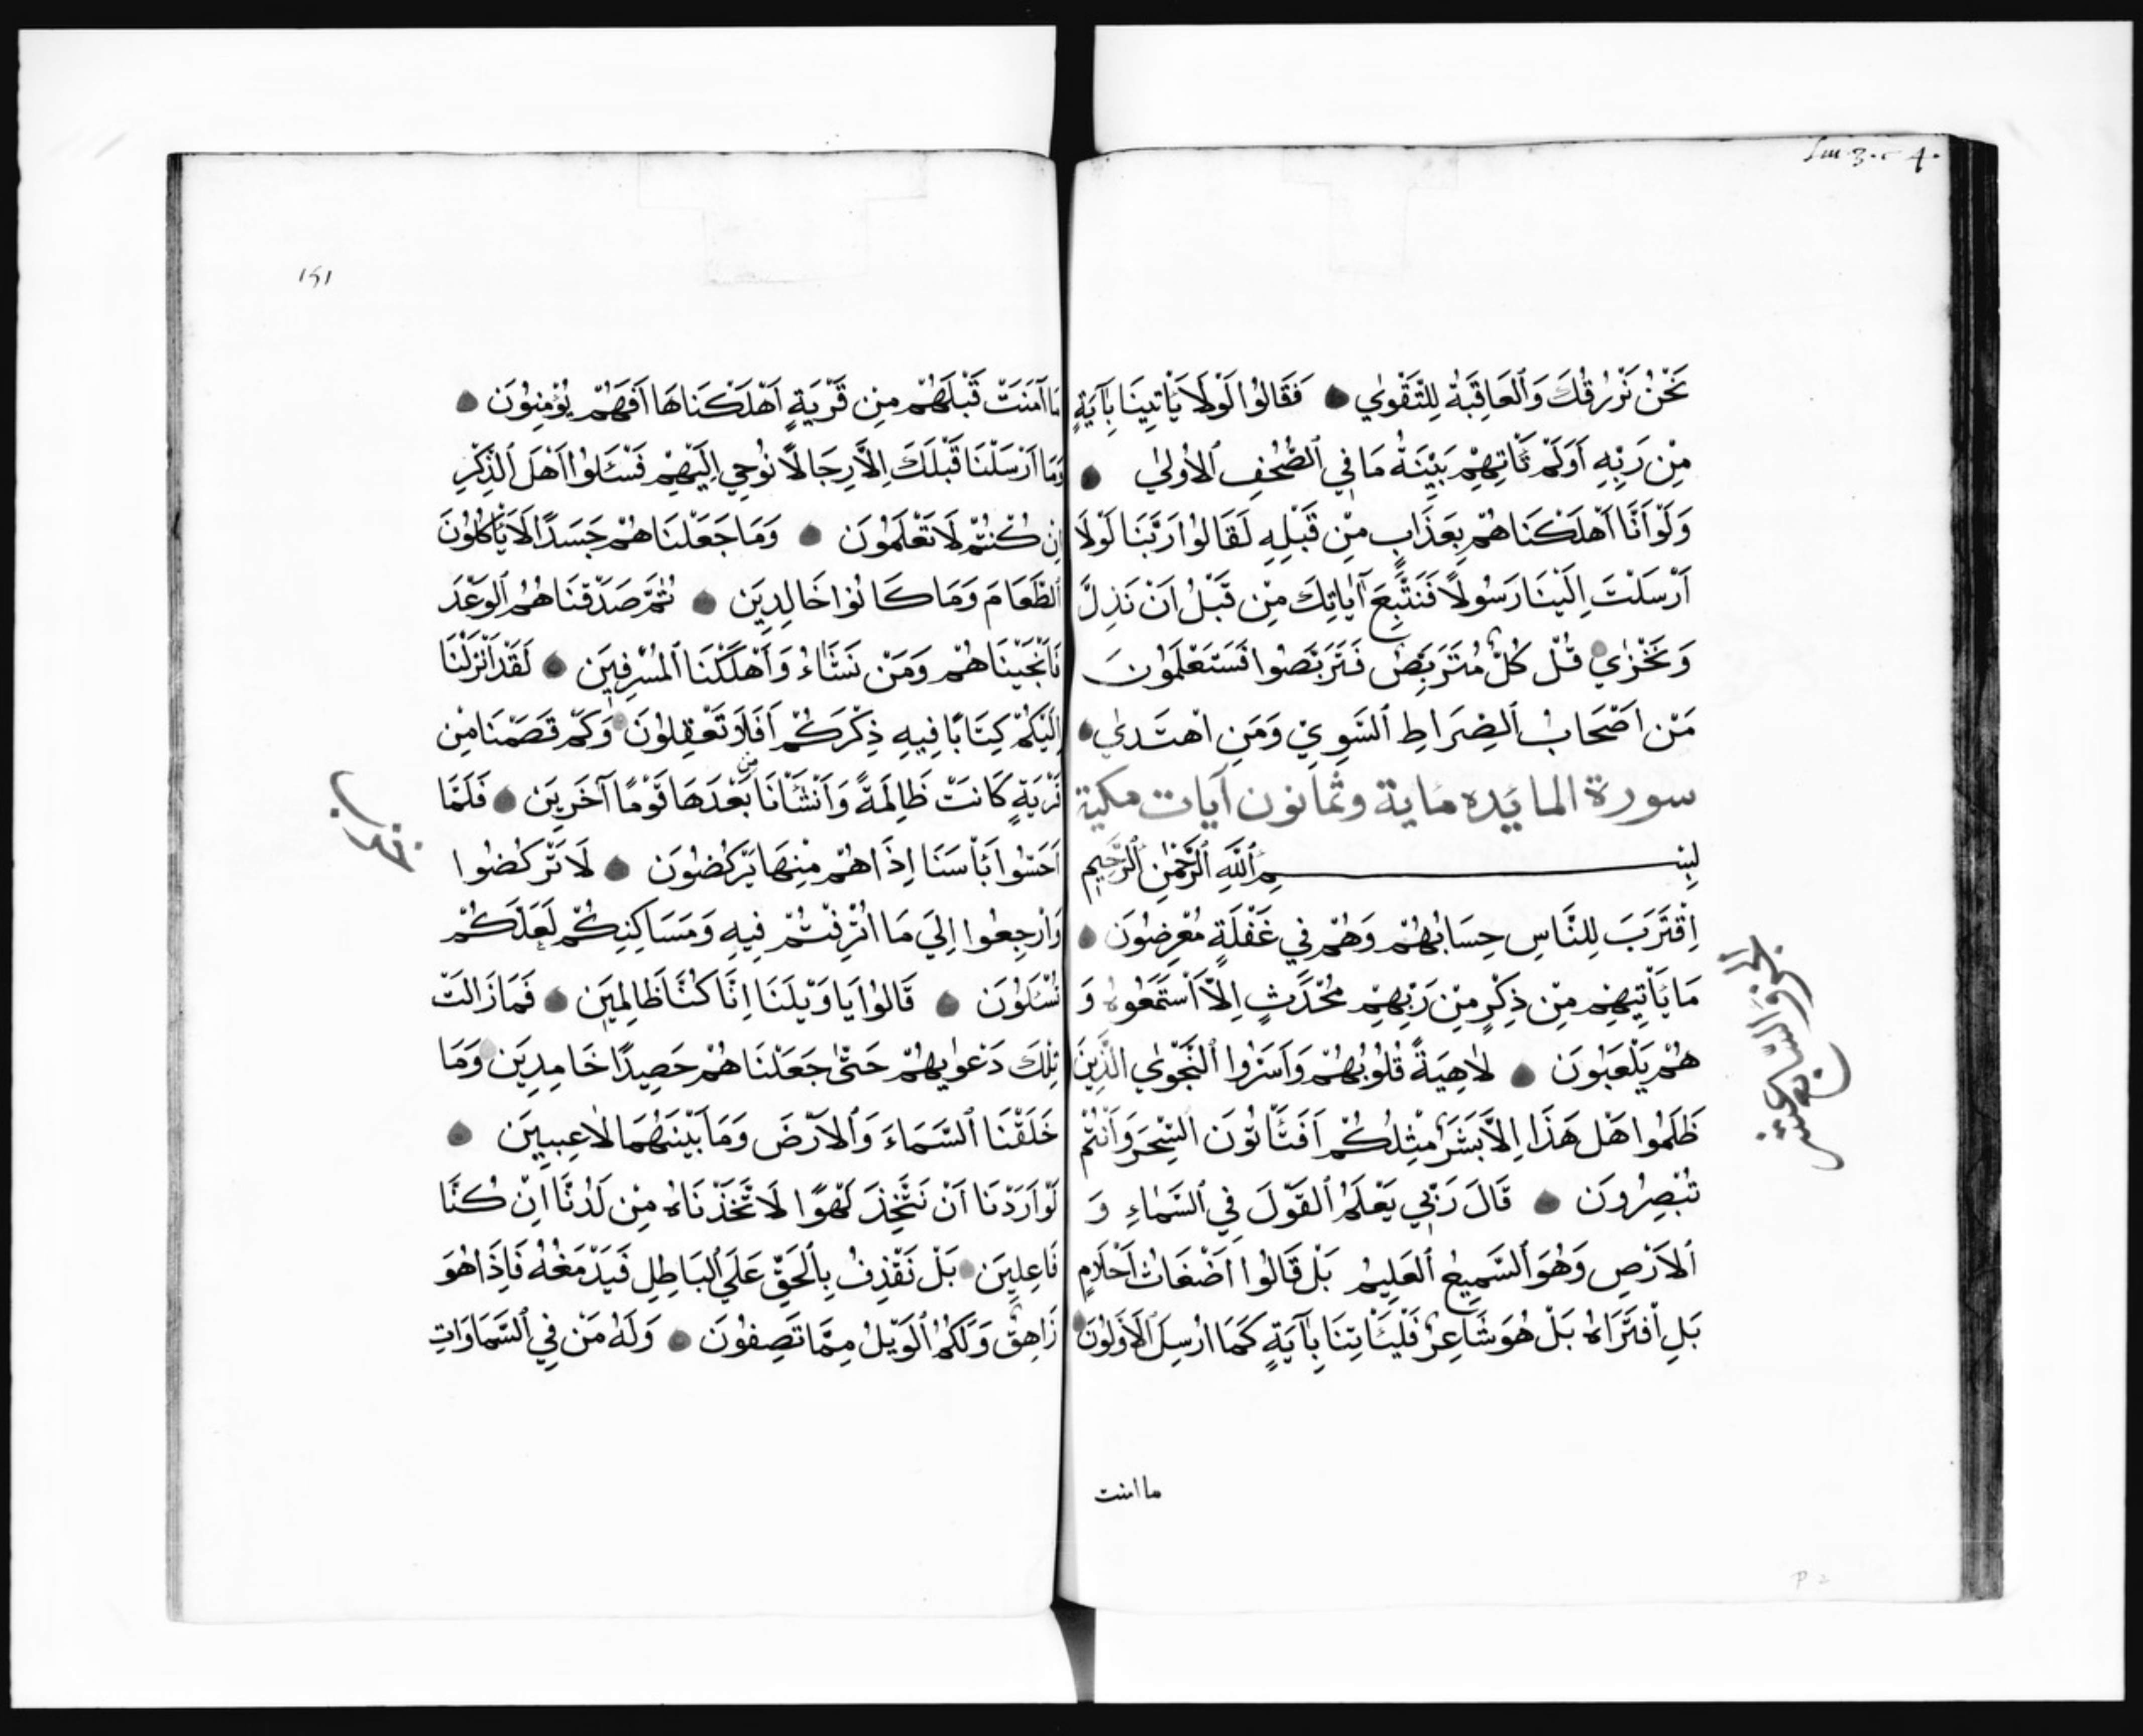 Sm. 3. c. 4.
نَحْنُ نَرْزُقُكَ وَٱلعَاقِبَةُ لِلتَّقْوٰي فَقَالُوا لَوْلَا يَأْتِينَا بِآيَةٍ
مِنْ رَبِّهِ اَوَلَمْ تَأْتِهِمْ بَيِّنَةُ مَا فِي ٱلصُّحُفِ ٱلاُولٰي
وَلَوْ اَنَّا اَهْلَكْنَاهُمْ بِعَذَابٍ مِنْ قَبْلِهِ لَقَالُوا رَبَّنَا لَوْلَا
اَرْسَلْتَ اِلَيْنَا رَسُولًا فَنَتَّبِعَ آيَاتِكَ مِنْ قَبْلُ اَنْ نَذِلَّ
وَنَخْزٰي قُلْ كُلٌّ مُتَرَبِّصٌ فَتَرَبَّصُوا فَسَتَعْلَمُونَ
مَنْ اَصْحَابُ ٱلصِّرَاطِ ٱلسَّوِيِّ وَمَنِ اهْتَدٰي
سورة المايده ماية وثمانون آيات مكية
بِسْمِ ٱللَّهِ ٱلرَّحْمٰنِ ٱلرَّحِيمِ
اِقْتَرَبَ لِلنَّاسِ حِسَابُهُمْ وَهُمْ فِي غَفْلَةٍ مُعْرِضُونَ
مَا يَأْتِيهِمْ مِنْ ذِكْرٍ مِنْ رَبِّهِمْ مُحْدَثٍ اِلَّا ٱسْتَمَعُوهُ وَ
هُمْ يَلْعَبُونَ لَاهِيَةً قُلُوبُهُمْ وَاَسَرُّوا ٱلنَّجْوٰي الَّذِينَ
ظَلَمُوا هَلْ هَذَا اِلَّا بَشَرٌ مِثْلُكُمْ اَفَتَأْتُونَ السِّحْرَ وَاَنْتُمْ
تُبْصِرُونَ قَالَ رَبِّي يَعْلَمُ ٱلقَوْلَ فِي ٱلسَّمَاءِ وَ
ٱلاَرْضِ وَهُوَ ٱلسَّمِيعُ ٱلعَلِيمُ بَلْ قَالُوا اَضْغَاثُ اَحْلَامٍ
بَلِ ٱفْتَرَاهُ بَلْ هُوَ شَاعِرٌ فَلْيَأْتِنَا بِآيَةٍ كَمَا اُرْسِلَ ٱلاَوَّلُونَ
الجزؤ السابع عشر
ما امنت
P 2
١٤١
مَا آمَنَتْ قَبْلَهُمْ مِنْ قَرْيَةٍ اَهْلَكْنَاهَا اَفَهُمْ يُؤْمِنُونَ
وَمَا اَرْسَلْنَا قَبْلَكَ اِلَّا رِجَالًا نُوحِي اِلَيْهِمْ فَسْـَٔلُوا اَهْلَ ٱلذِّكْرِ
اِنْ كُنْتُمْ لَا تَعْلَمُونَ وَمَا جَعَلْنَاهُمْ جَسَدًا لَا يَأْكُلُونَ
ٱلطَّعَامَ وَمَا كَانُوا خَالِدِينَ ثُمَّ صَدَقْنَاهُمُ ٱلوَعْدَ
فَاَنْجَيْنَاهُمْ وَمَنْ نَشَاءُ وَاَهْلَكْنَا ٱلمُسْرِفِينَ لَقَدْ اَنْزَلْنَا
اِلَيْكُمْ كِتَابًا فِيهِ ذِكْرُكُمْ اَفَلَا تَعْقِلُونَ وَكَمْ قَصَمْنَا مِنْ
قَرْيَةٍ كَانَتْ ظَالِمَةً وَاَنْشَأْنَا من بَعْدَهَا قَوْمًا آخَرِينَ فَلَمَّا
اَحَسُّوا بَأْسَنَا اِذَا هُمْ مِنْهَا يَرْكُضُونَ لَا تَرْكُضُوا
وَارْجِعُوا اِلَي مَا اُتْرِفْتُمْ فِيهِ وَمَسَاكِنِكُمْ لَعَلَّكُمْ
تُسْـَٔلُونَ قَالُوا يَا وَيْلَنَا اِنَّا كُنَّا ظَالِمِينَ فَمَا زَالَتْ
تِلْكَ دَعْوٰيهُمْ حَتّٰي جَعَلْنَاهُمْ حَصِيدًا خَامِدِينَ وَمَا
خَلَقْنَا ٱلسَّمَاءَ وَٱلاَرْضَ وَمَا بَيْنَهُمَا لَاعِبِينَ
لَوْ اَرَدْنَا اَنْ نَتَّخِذَ لَهْوًا لَاتَّخَذْنَاهُ مِنْ لَدُنَّا اِنْ كُنَّا
فَاعِلِينَ بَلْ نَقْذِفُ بِٱلحَقِّ عَلَي ٱلبَاطِلِ فَيَدْمَغُهُ فَاِذَا هُوَ
زَاهِقٌ وَلَكُمُ ٱلوَيْلُ مِمَّا تَصِفُونَ وَلَهُ مَنْ فِي ٱلسَّمَاوَاتِ